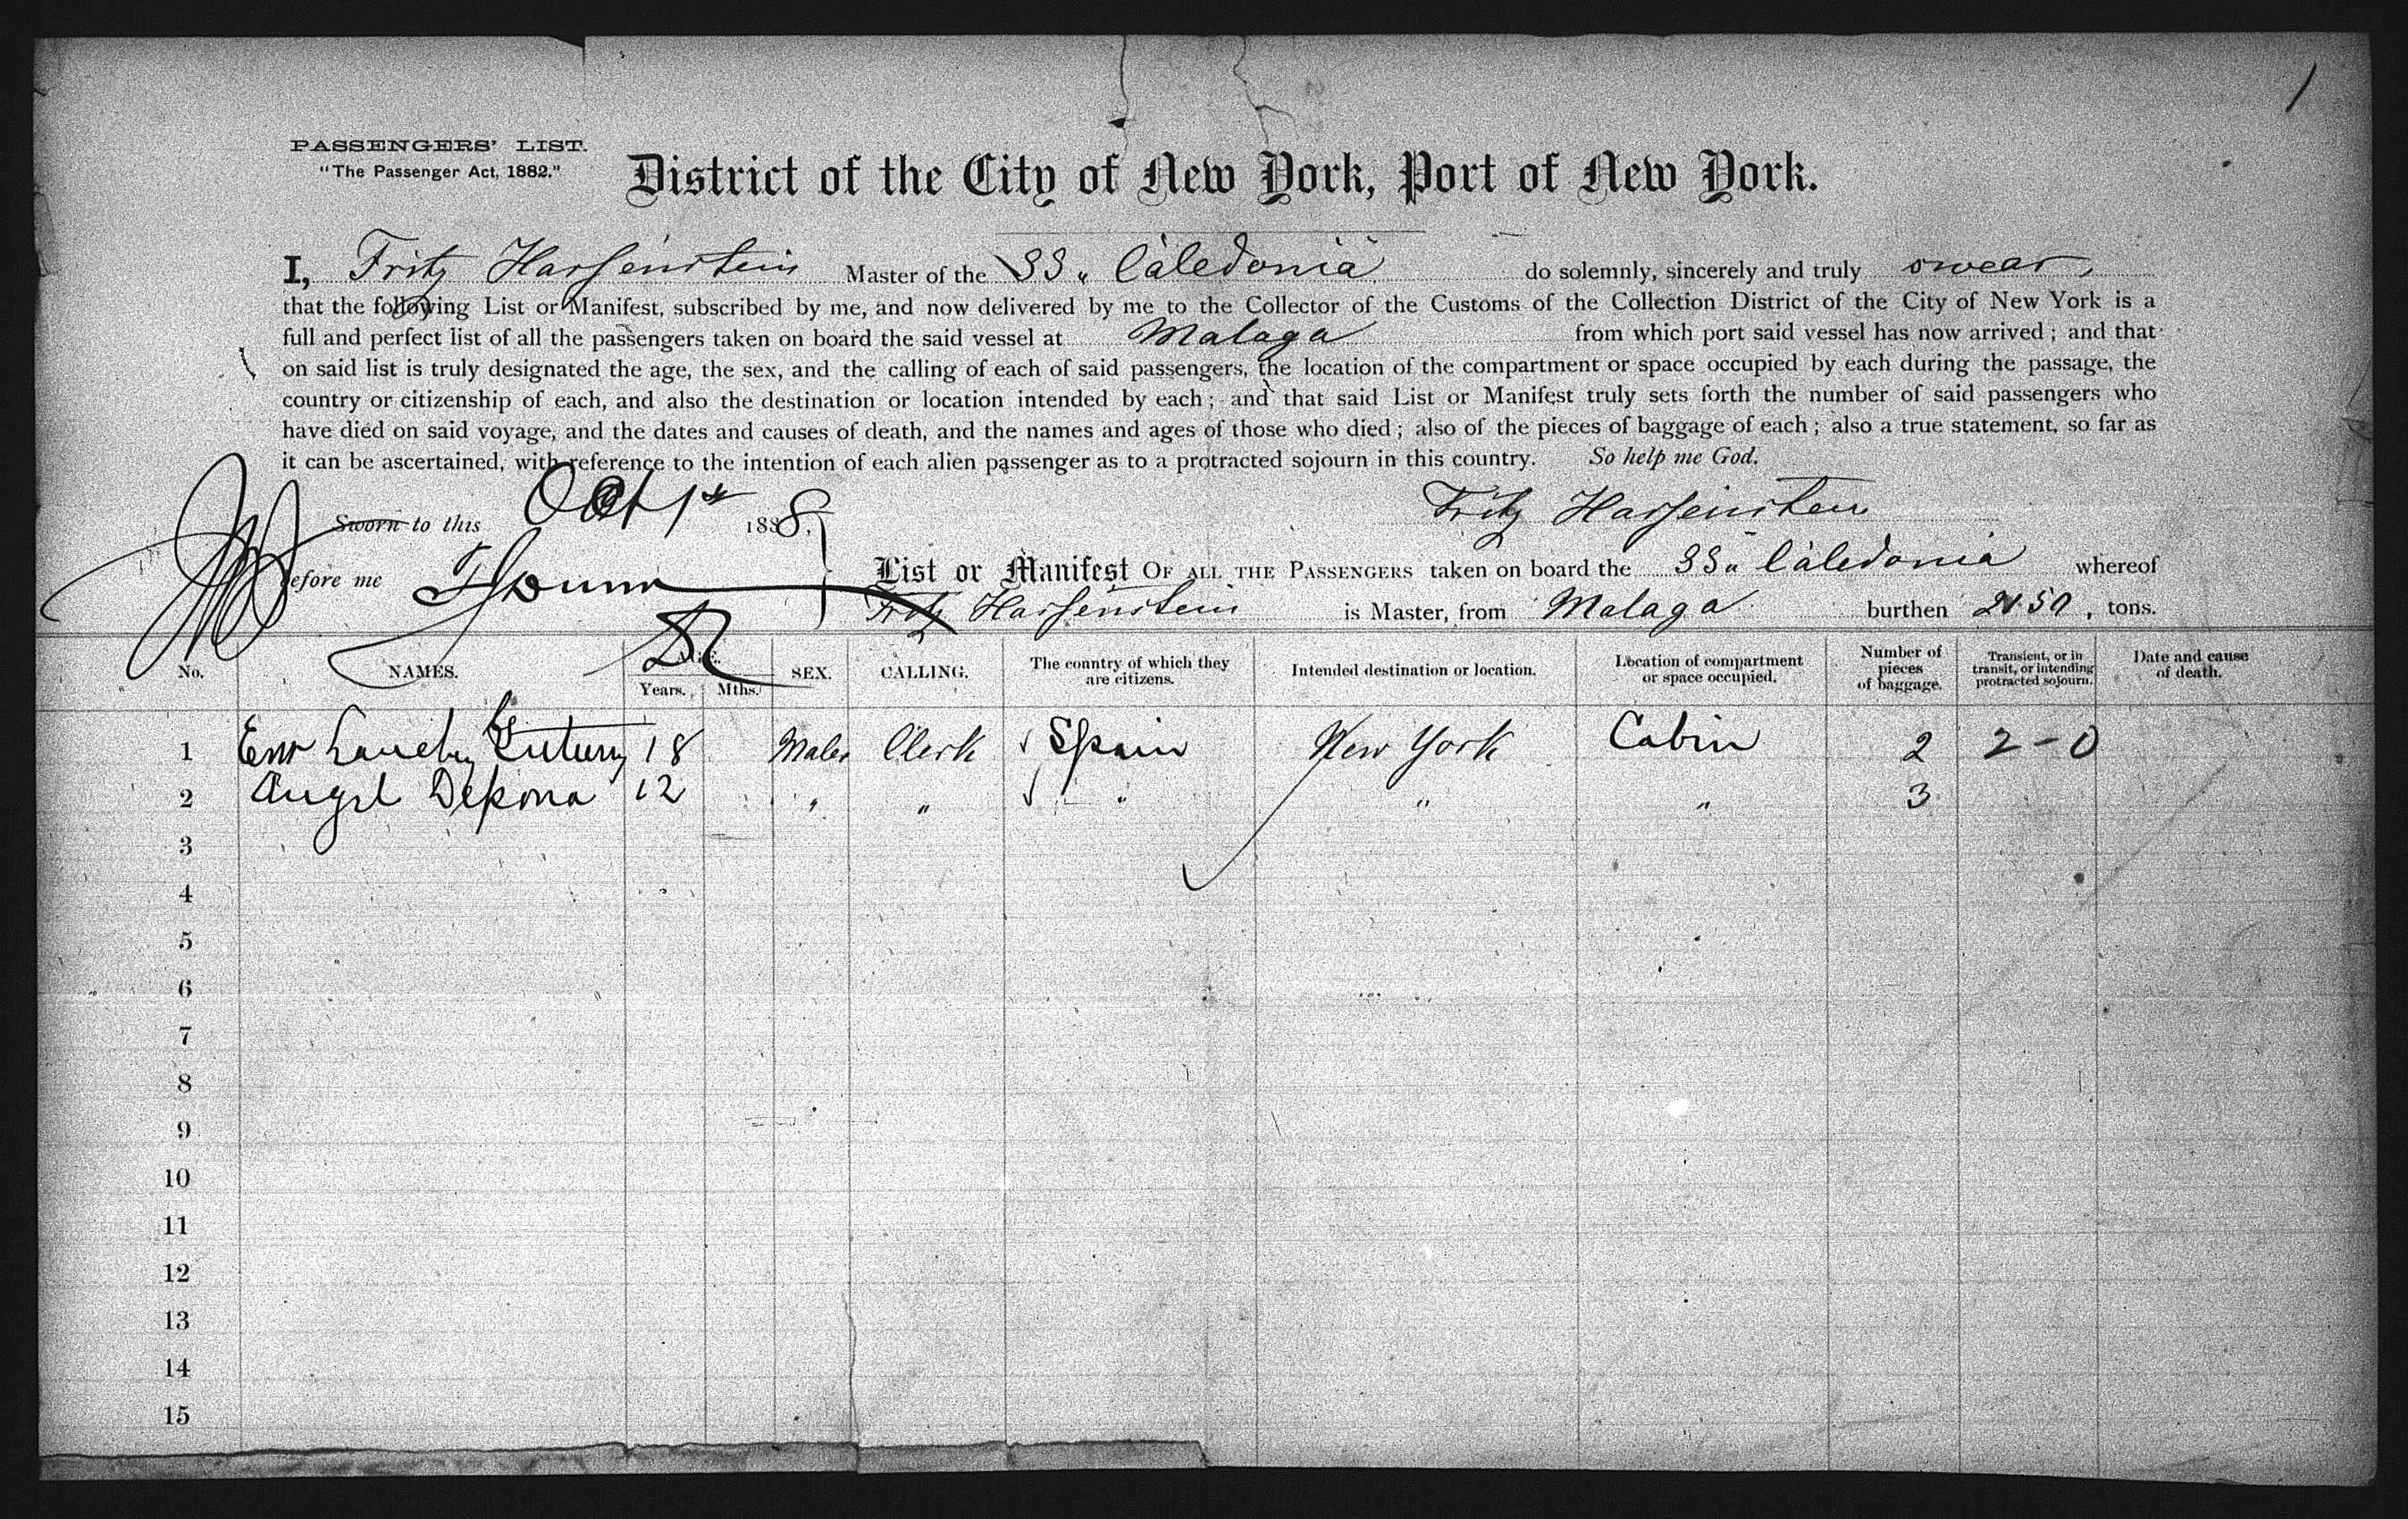 1
PASSENGERS' LIST.
"The Passenger Act, 1882."
District of the City of New York, Port of New York.
I, Fritz Hassenstein Master of the SS. Caledonia do solemnly, sincerely and truly swear,
that the following List or Manifest, subscribed by me, and now delivered by me to the Collector of the Customs of the Collection District of the City of New York is a
full and perfect list of all the passengers taken on board the said vessel at Malaga from which port said vessel has now arrived; and that
on said list is truly designated the age, the sex, and the calling of each of said passengers, the location of the compartment or space occupied by each during the passage, the
country or citizenship of each, and also the destination or location intended by each; and that said List or Manifest truly sets forth the number of said passengers who
have died on said voyage, and the dates and causes of death, and the names and ages of those who died; also of the pieces of baggage of each; also a true statement, so far as
it can be ascertained, with reference to the intention of each alien passenger as to a protracted sojourn in this country. So help me God.
Sworn to this Oct 1st 1888. Fritz Hassenstein
before me
List or Manifest OF ALL THE PASSENGERS taken on board the SS. Caledonia whereof
Fritz Hassenstein is Master, from Malaga burthen tons.
No. NAMES. AGE. Years. Mths. SEX. CALLING. The country of which they are citizens. Intended destination or location. Location of compartment or space occupied. Number of pieces of baggage. Transient, or in transit, or intending protracted sojourn. Date and cause of death.
1 18 Male Clerk Spain New York Cabin 2 2-0
2 Angel 12 " " " " " 3
3
4
5
6
7
8
9
10
11
12
13
14
15